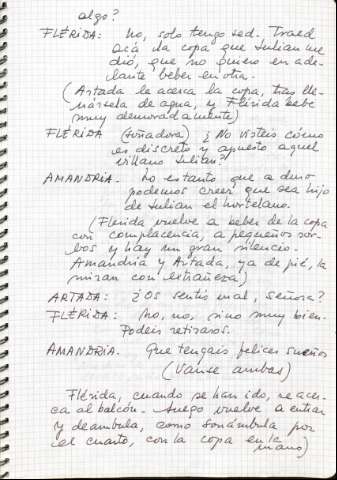 algo?
FLÉRIDA: No, solo tengo sed. Traed
acá la copa que Julian me
dió, que no quiero en ade-
lante beber en otra.
(Artada le acerca la copa, tras lle-
nársela de agua, y Flérida bebe
muy demoradamente)
FLÉRIDA (soñadora) ¿No visteis cómo
es discreto y apuesto aquel
villano Julian?
AMANDRIA. Lo es tanto que a duro
podemos creer que sea hijo
de Julian el hortelano.
(Flérida vuelve a beber de la copa
con complacencia, a pequeños sor-
bos y hay un gran silencio.
Amandria y Artada, ya de pié, la
miran con extrañeza)
ARTADA: ¿Os sentís mal, señora?
FLÉRIDA: No, no, sino muy bien.
Podeis retiraros.
AMANDRIA. Que tengais felices sueños
(Vanse ambas)
Flérida, cuando se han ido, se acer-
ca al balcón. Luego vuelve a entrar
y deambula, como sonámbula por
el cuarto, con la copa en la
mano)